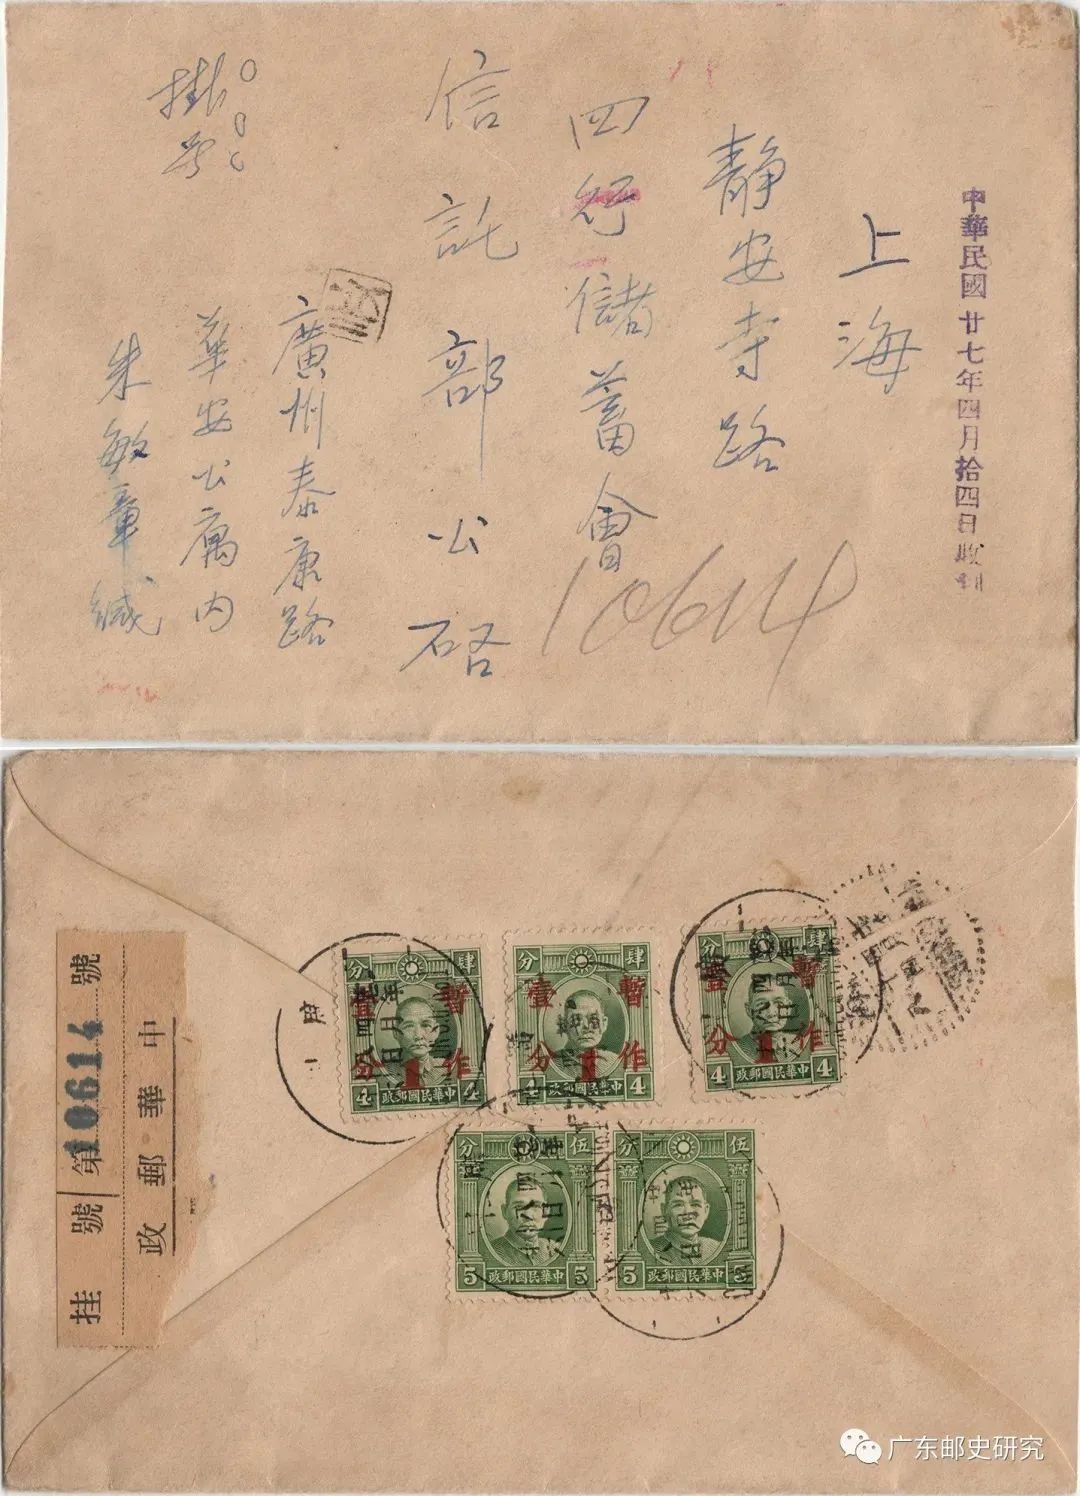 中華民國廿七年四月拾四日收到
上海
静安寺路
四行儲蓄會
信託部公啓
廣州泰康路
華安公寓内
朱敏章緘
掛號
10614
挂號 第10614號
中華郵政
分 肆
壹分 暫作
1
4 中華民國郵政 4
分 肆
壹分 暫作
1
4 中華民國郵政 4
分 肆
壹分 暫作
1
4 中華民國郵政 4
分 伍
5 中華民國郵政 5
分 伍
5 中華民國郵政 5
广东邮史研究